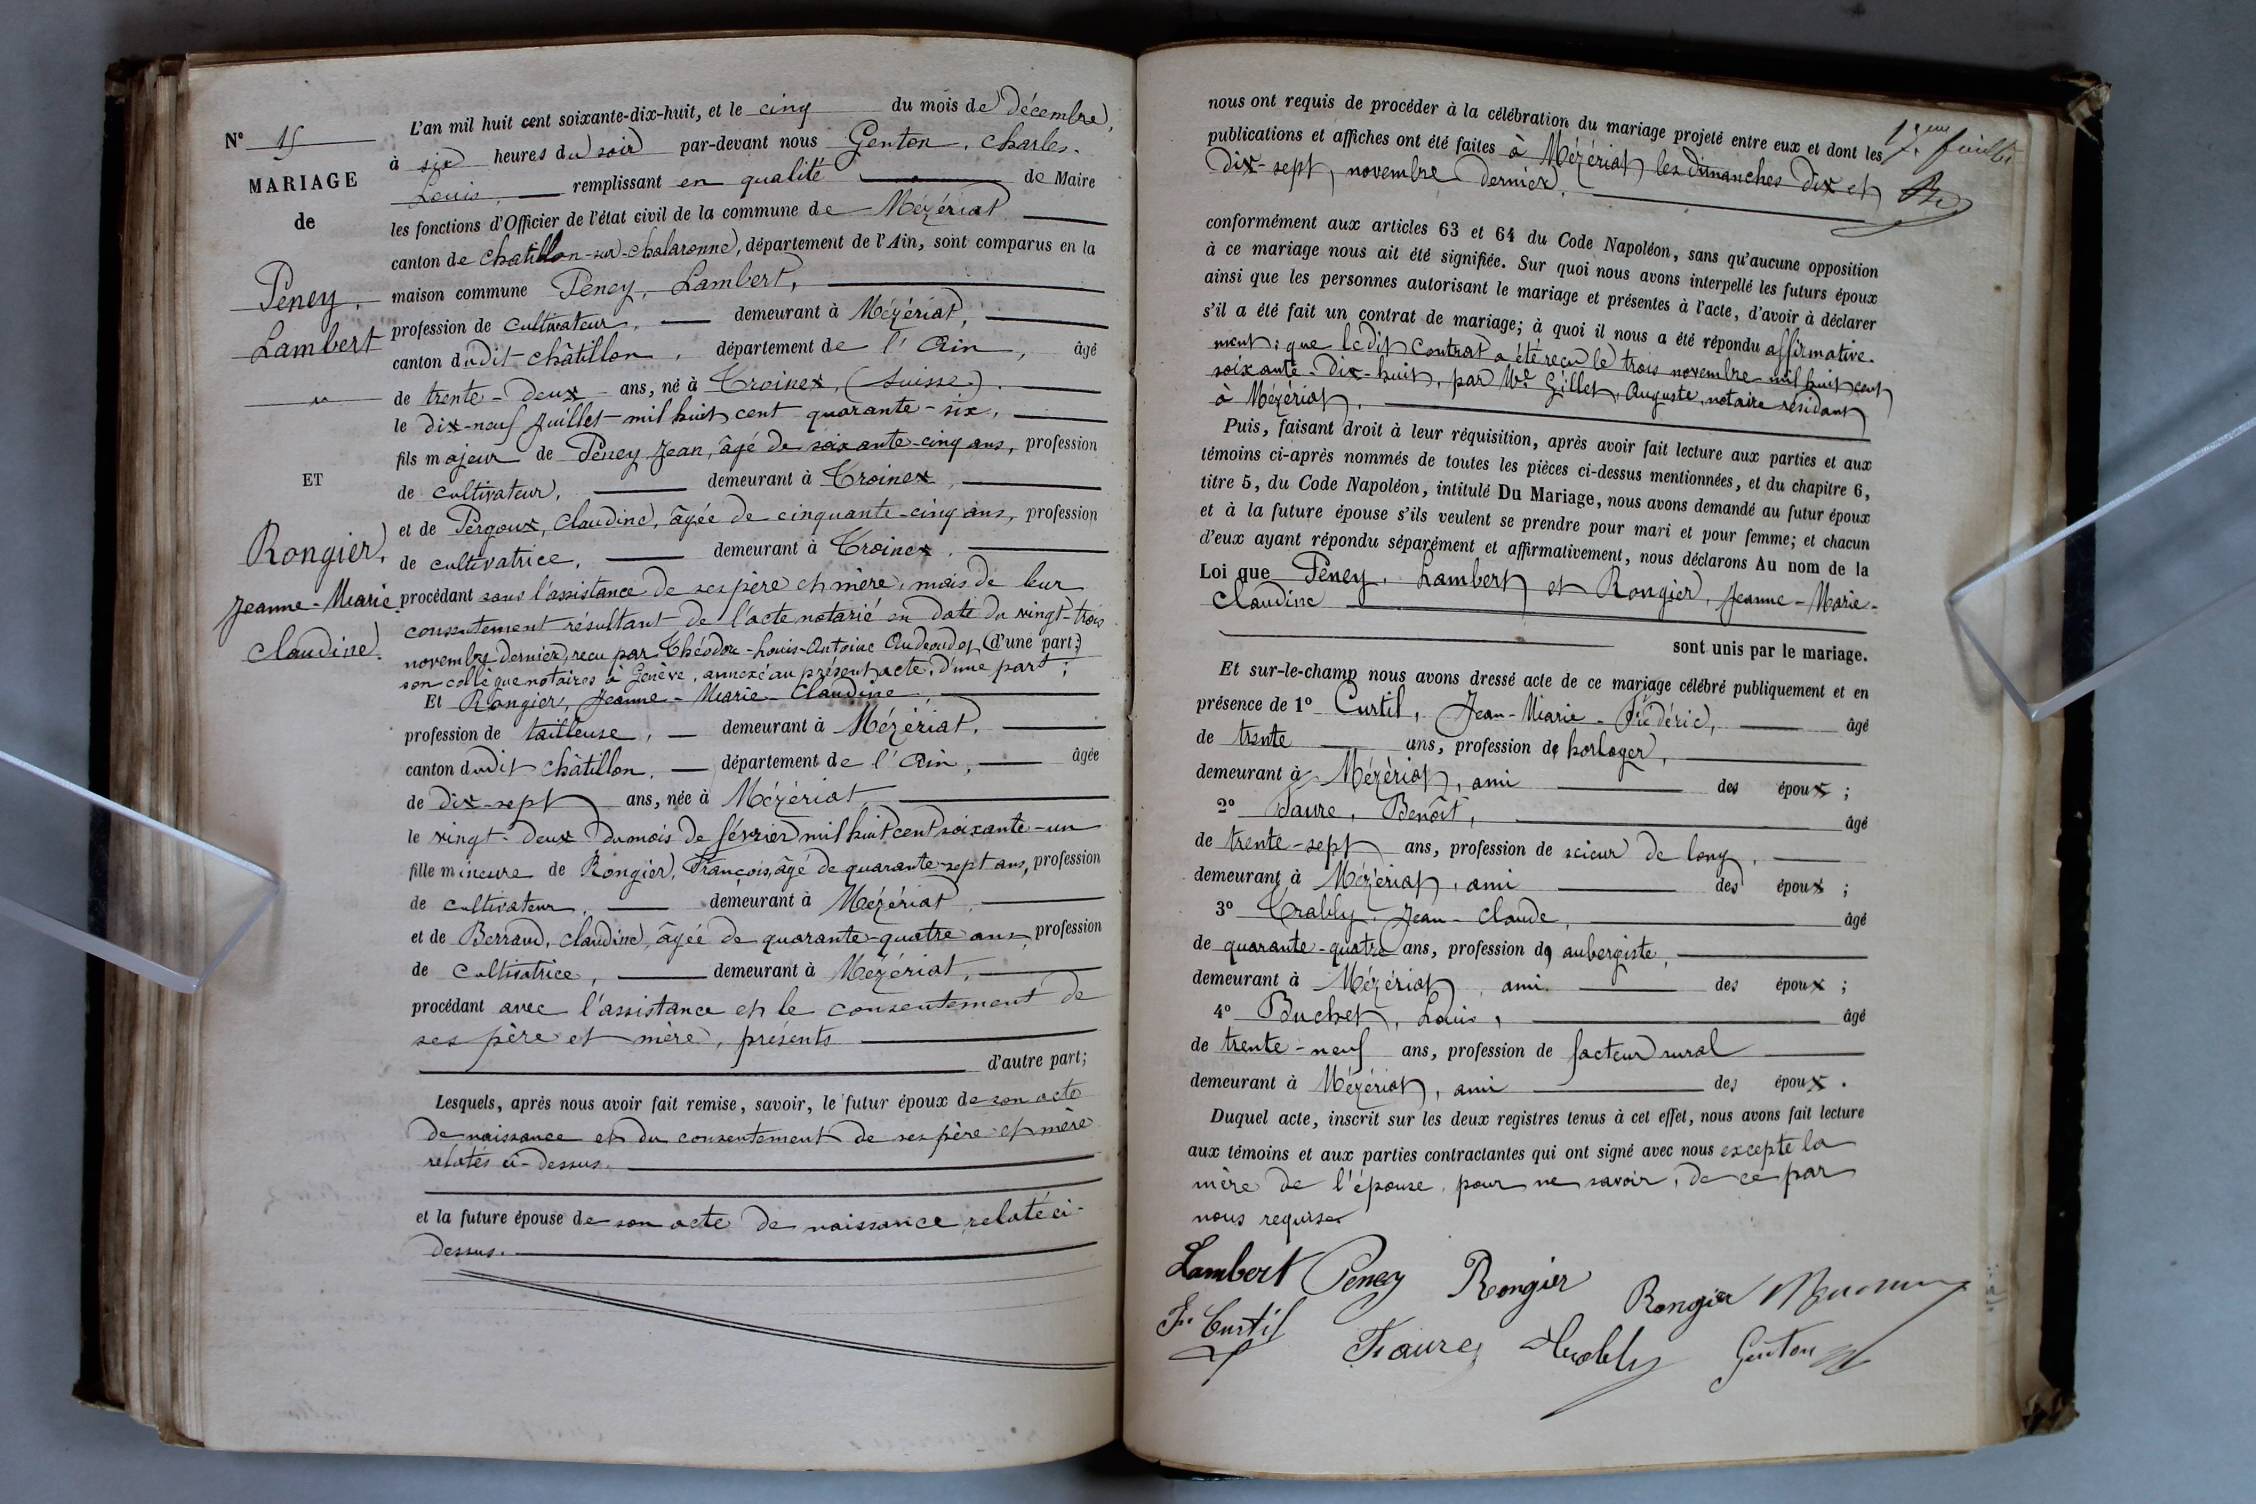 N° 15
MARIAGE
de
Peney,
Lambert
ET
Rongier,
Jeanne-Marie
Claudine.
L'an mil huit cent soixante-dix-huit, et le cinq du mois de décembre,
à six heures du soir par-devant nous Genton, Charles-
Louis, remplissant en qualité de Maire
les fonctions d'Officier de l'état civil de la commune de Mézériat
canton de Chatillon-sur-Chalaronne, département de l'Ain, sont comparus en la
maison commune Peney, Lambert,
profession de cultivateur, demeurant à Mézériat,
canton dudit Châtillon, département de l'Ain, âgé
de trente-deux ans, né à Troinex, (Suisse).
le dix-neuf juillet mil huit cent quarante-six,
fils majeur de Peney Jean, âgé de soixante-cinq ans, profession
de cultivateur, demeurant à Troinex,
et de Pergoux, Claudine, âgée de cinquante-cinq ans, profession
de cultivatrice, demeurant à Troinex,
procédant sans l'assistance de ses père et mère, mais de leur
consentement résultant de l'acte notarié en date du vingt-trois
novembre dernier, reçu par Théodore-Louis-Antoine Audeoud et (d'une part;)
son collègue notaires à Genève, annexé au présent acte, d'une part;
Et Rongier, Jeanne-Marie-Claudine,
profession de tailleuse, demeurant à Mézériat,
canton dudit Châtillon, département de l'Ain, âgée
de dix-sept ans, née à Mézériat
le vingt-deux du mois de février mil huit cent soixante-un
fille mineure de Rongier, François, âgé de quarante-sept ans, profession
de cultivateur, demeurant à Mézériat,
et de Berraud, Claudine, âgée de quarante-quatre ans, profession
de cultivatrice, demeurant à Mézériat,
procédant avec l'assistance et le consentement de
ses père et mère, présents
d'autre part;
Lesquels, après nous avoir fait remise, savoir, le futur époux de son acte
de naissance et du consentement de ses père et mère
relatés ci-dessus.
et la future épouse de son acte de naissance relaté ci-
dessus.
17eme feuillet
nous ont requis de procéder à la célébration du mariage projeté entre eux et dont les
publications et affiches ont été faites à Mézériat les dimanches dix et
dix-sept, novembre dernier.
conformément aux articles 63 et 64 du Code Napoléon, sans qu'aucune opposition
à ce mariage nous ait été signifiée. Sur quoi nous avons interpellé les futurs époux
ainsi que les personnes autorisant le mariage et présentes à l'acte, d'avoir à déclarer
s'il a été fait un contrat de mariage; à quoi il nous a été répondu affirmative-
ment: que ledit contrat a été reçu le trois novembre mil huit cent
soixante-dix-huit, par Me Gillet, Auguste, notaire résidant
à Mézériat,
Puis, faisant droit à leur réquisition, après avoir fait lecture aux parties et aux
témoins ci-après nommés de toutes les pièces ci-dessus mentionnées, et du chapitre 6,
titre 5, du Code Napoléon, intitulé Du Mariage, nous avons demandé au futur époux
et à la future épouse s'ils veulent se prendre pour mari et pour femme; et chacun
d'eux ayant répondu séparément et affirmativement, nous déclarons Au nom de la
Loi que Peney, Lambert et Rongier, Jeanne-Marie-
Claudine
sont unis par le mariage.
Et sur-le-champ nous avons dressé acte de ce mariage célébré publiquement et en
présence de 1° Curtil, Jean-Marie-Frédéric, âgé
de trente ans, profession de horloger,
demeurant à Mézériat, ami des époux;
2° Faure, Benoît, âgé
de trente-sept ans, profession de scieur de long,
demeurant à Mézériat, ami des époux;
3° Trably, Jean-Claude, âgé
de quarante-quatre ans, profession de aubergiste,
demeurant à Mézériat, ami des époux;
4° Buchet, Louis, âgé
de trente-neuf ans, profession de facteur rural
demeurant à Mézériat, ami des époux.
Duquel acte, inscrit sur les deux registres tenus à cet effet, nous avons fait lecture
aux témoins et aux parties contractantes qui ont signé avec nous excepté la
mère de l'épouse, pour ne savoir, de ce par
nous requise.
Lambert Peney Rongier Rongier
Fr. Curtil Faure Trably Genton